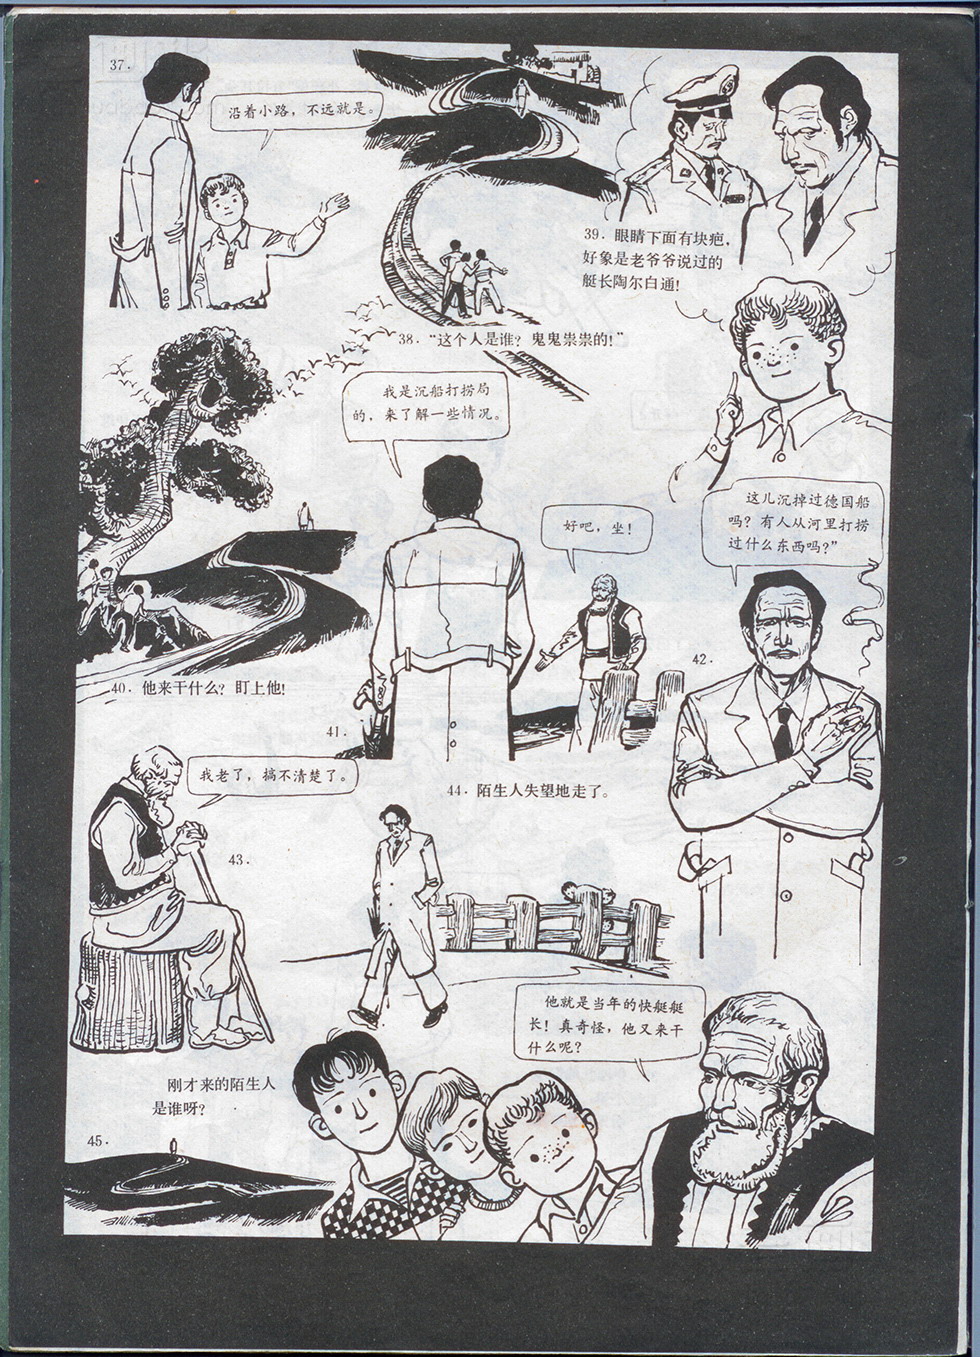 37.
沿着小路，不远就是。
38.“这个人是谁？鬼鬼祟祟的！”
39.眼睛下面有块疤，
好象是老爷爷说过的
艇长陶尔白通！
40.他来干什么？盯上他！
41.
我是沉船打捞局
的，来了解一些情况。
好吧，坐！
42.
这儿沉掉过德国船
吗？有人从河里打捞
过什么东西吗？”
43.
我老了，搞不清楚了。
44.陌生人失望地走了。
45.
刚才来的陌生人
是谁呀？
他就是当年的快艇艇
长！真奇怪，他又来干
什么呢？